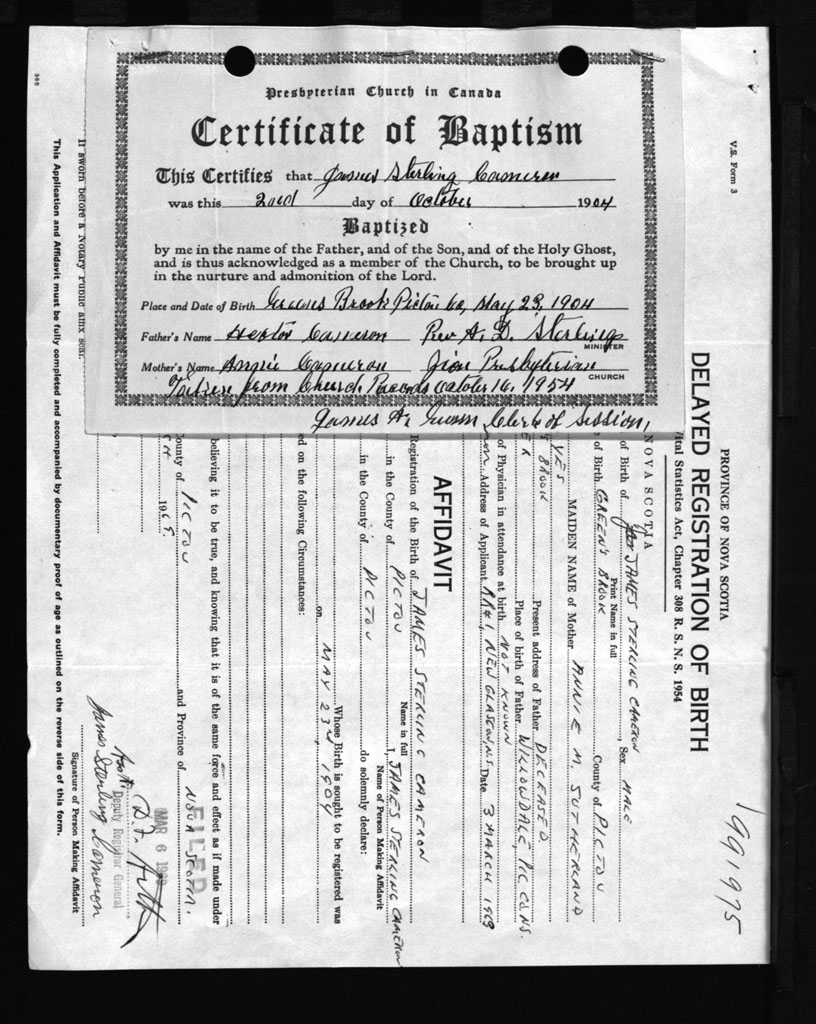 Presbyterian Church in Canada
Certificate of Baptism
This Certifies that James Sterling Cameron
was this 22nd day of October 1904
Baptized
by me in the name of the Father, and of the Son, and of the Holy Ghost,
and is thus acknowledged as a member of the Church, to be brought up
in the nurture and admonition of the Lord.
Place and Date of Birth Greens Brook Pictou Co, May 23, 1904
Father's Name Hector Cameron Rev A. D. Sterling
MINISTER
Mother's Name Annie Cameron Zion Presbyterian
CHURCH
Taken from Church Records October 16, 1954
James A. Clerk of Session,
V.S. Form 3
1991975
PROVINCE OF NOVA SCOTIA
DELAYED REGISTRATION OF BIRTH
Vital Statistics Act, Chapter 308 R. S. N. S. 1954
NOVA SCOTIA
of Birth of JAMES STERLING CAMERON, Sex MALE
Print Name in full
of Birth GREENS BROOK County of PICTOU
YES MAIDEN NAME of Mother ANNIE M. SUTHERLAND
BROOK Present address of Father DECEASED
Place of birth of Father WILLOWDALE, PIC CO. N.S.
of Physician in attendance at birth NOT KNOWN
Address of Applicant RR#1, NEW GLASGOW N.S. Date 3 MARCH 1969
AFFIDAVIT
Registration of the Birth of JAMES STERLING CAMERON
Name in full
in the County of PICTOU I, JAMES STERLING CAMERON
Name of Person Making Affidavit
in the County of PICTOU do solemnly declare:
Whose Birth is sought to be registered was
on MAY 23rd, 1904
ed on the following Circumstances:
believing it to be true, and knowing that it is of the same force and effect as if made under
County of PICTOU and Province of NOVA SCOTIA.
1969.
FILED
MAR 6
Deputy Registrar General
James Sterling Cameron
Signature of Person Making Affidavit
If sworn before a Notary Public affix seal.
This Application and Affidavit must be fully completed and accompanied by documentary proof of age as outlined on the reverse side of this form.